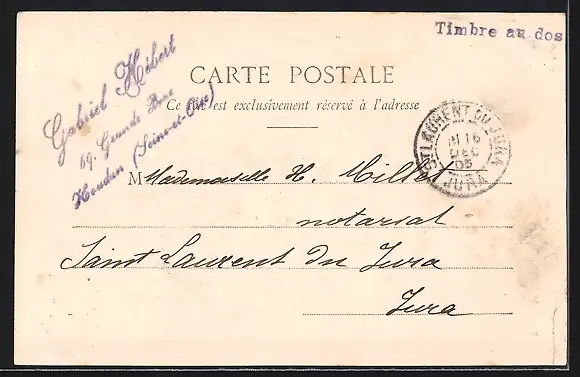 Timbre au dos
Gabriel Hébert
69, Grande Rue
Houdan (Seine-et-Oise)
CARTE POSTALE
Ce côté est exclusivement réservé à l'adresse
ST LAURENT DU JURA
16
DEC
05
JURA
M Mademoiselle H. Millet
notariat
Saint Laurent du Jura
Jura